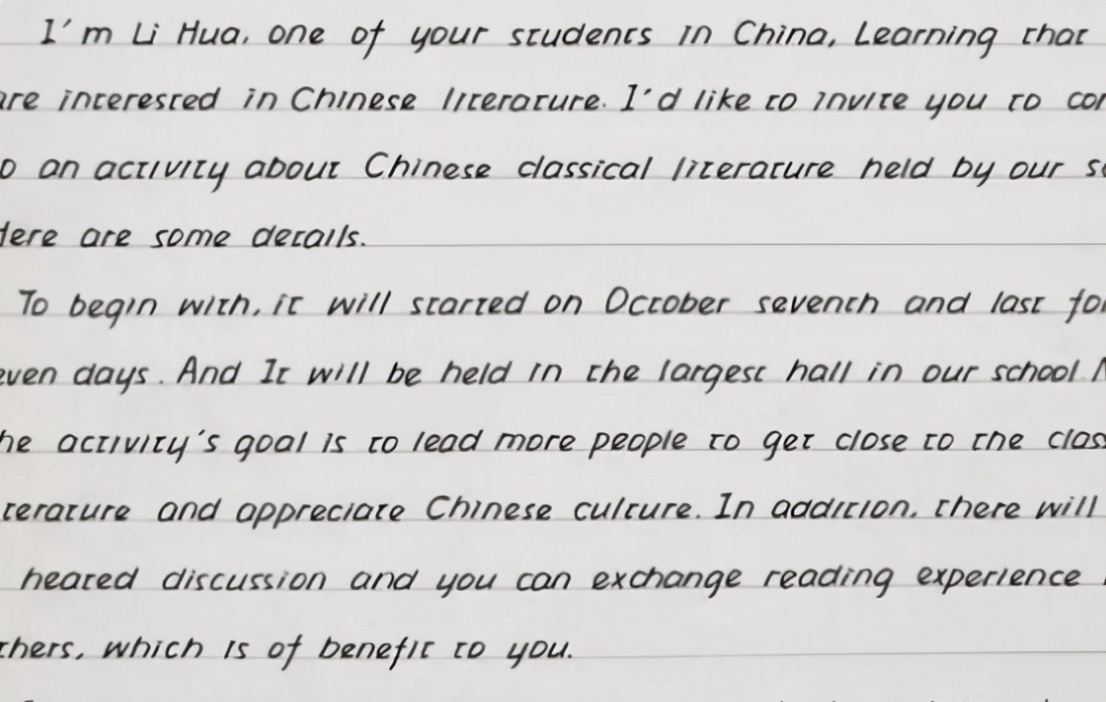 I'm Li Hua, one of your students in China, Learning that
are interested in Chinese literature. I'd like to invite you to
an activity about Chinese classical literature held by our
Here are some details.
To begin with, it will started on October seventh and last for
even days. And It will be held in the largest hall in our school.
he activity's goal is to lead more people to get close to the
terature and appreciate Chinese culture. In addition, there will
heated discussion and you can exchange reading experience
thers, which is of benefit to you.